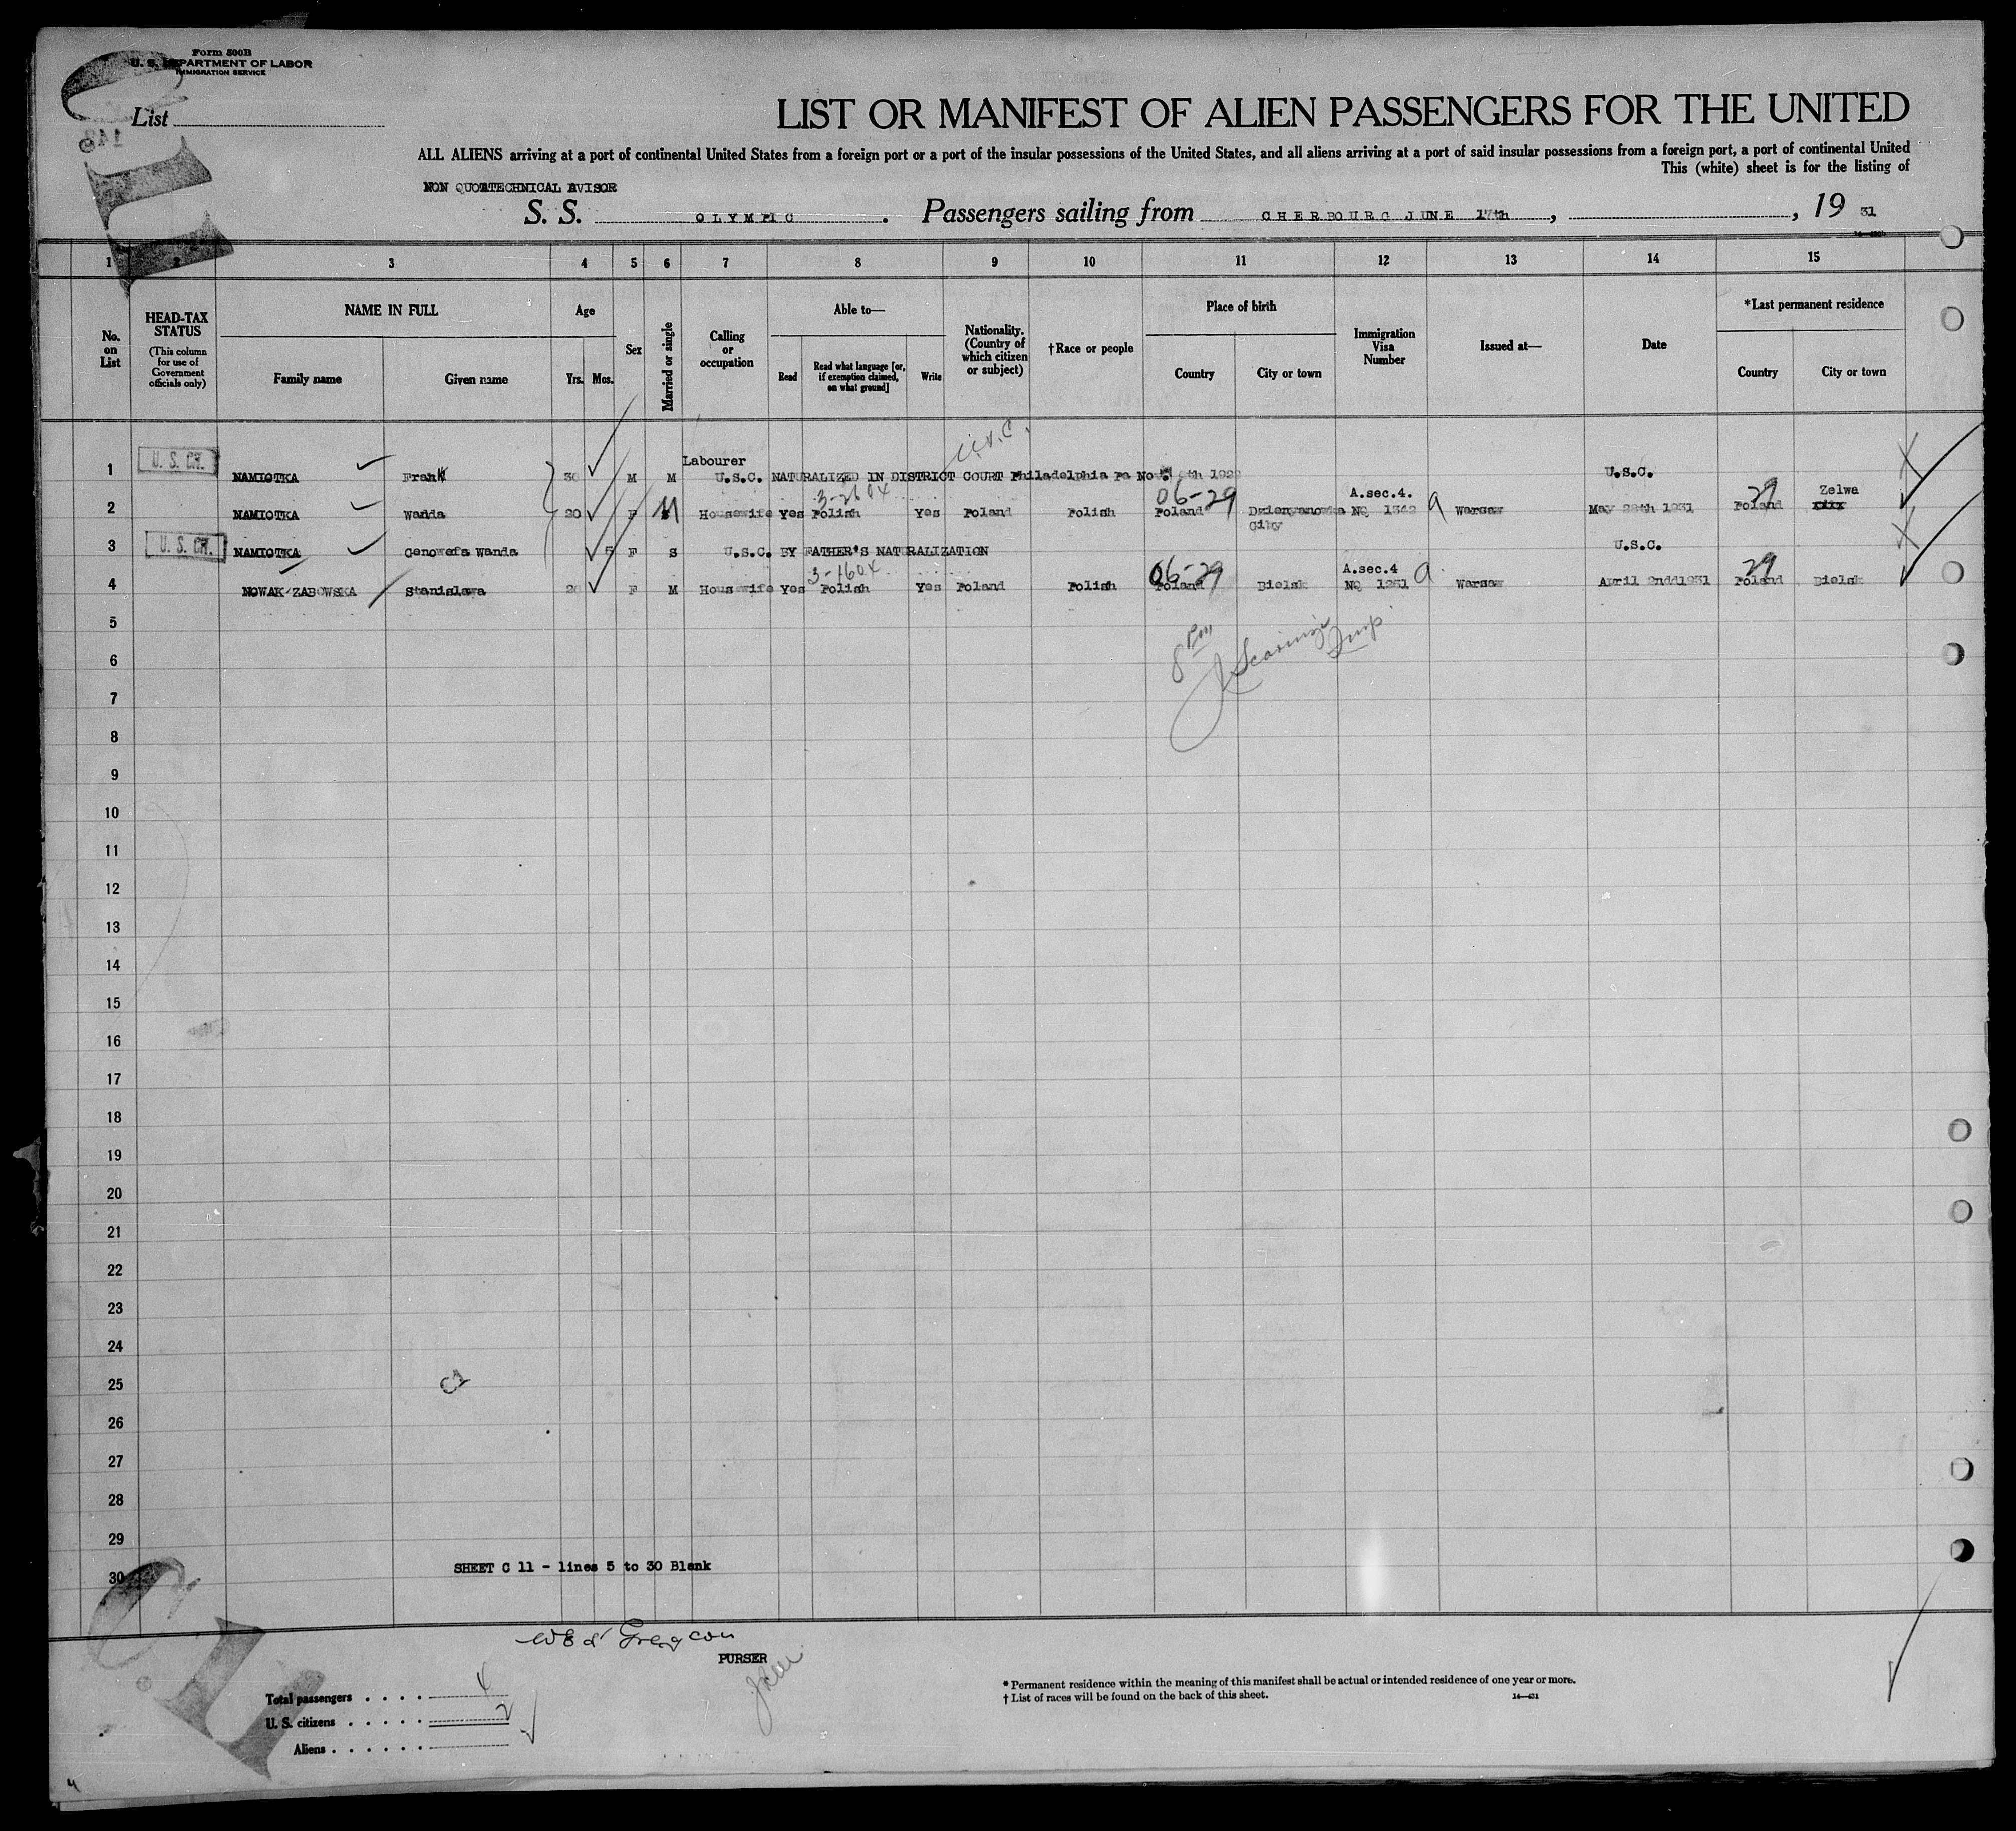 Form 500B
U. S. DEPARTMENT OF LABOR
IMMIGRATION SERVICE
List
LIST OR MANIFEST OF ALIEN PASSENGERS FOR THE UNITED
ALL ALIENS arriving at a port of continental United States from a foreign port or a port of the insular possessions of the United States, and all aliens arriving at a port of said insular possessions from a foreign port, a port of continental United
This (white) sheet is for the listing of
S. S. OLYMPIC . Passengers sailing from CHERBOURG JUNE 17th , , 19 31
1 2 3 4 5 6 7 8 9 10 11 12 13 14 15
No. on List
HEAD-TAX STATUS
(This column for use of Government officials only)
NAME IN FULL
Family name Given name
Age
Yrs. Mos.
Sex
Married or single
Calling or occupation
Able to—
Read
Read what language [or, if exemption claimed, on what ground]
Write
Nationality. (Country of which citizen or subject)
†Race or people
Place of birth
Country City or town
Immigration Visa Number
Issued at—
Date
*Last permanent residence
Country City or town
U.S.C.
Labourer
1 U. S. CH. NAMIOTKA Frank 30 M M U.S.C. NATURALIZED IN DISTRICT COURT Philadelphia Pa U.S.C.
3-260X 06-29 A.sec.4. 29 Zelwa
2 NAMIOTKA Wanda 20 F M Housewife Yes Polish Yes Poland Polish Poland NQ 1342 Warsaw May 28th 1931 Poland
3 U. S. CH. NAMIOTKA Genowefa Wanda 5 F S U.S.C. BY FATHER'S NATURALIZATION U.S.C.
3-160X 06-29 A.sec.4 29
4 NOWAK-ZABOWSKA Stanislawa F M Housewife Yes Polish Yes Poland Polish Poland Bielsk NQ 1231 Warsaw April 2nd 1931 Poland Bielsk
5
8 PM
6
7
8
9
10
11
12
13
14
15
16
17
18
19
20
21
22
23
24
25
26
27
28
29
SHEET C 11 - lines 5 to 30 Blank
30
PURSER
Total passengers . . . . 4
U. S. citizens . . . . . 2
Aliens . . . . . .
* Permanent residence within the meaning of this manifest shall be actual or intended residence of one year or more.
† List of races will be found on the back of this sheet.